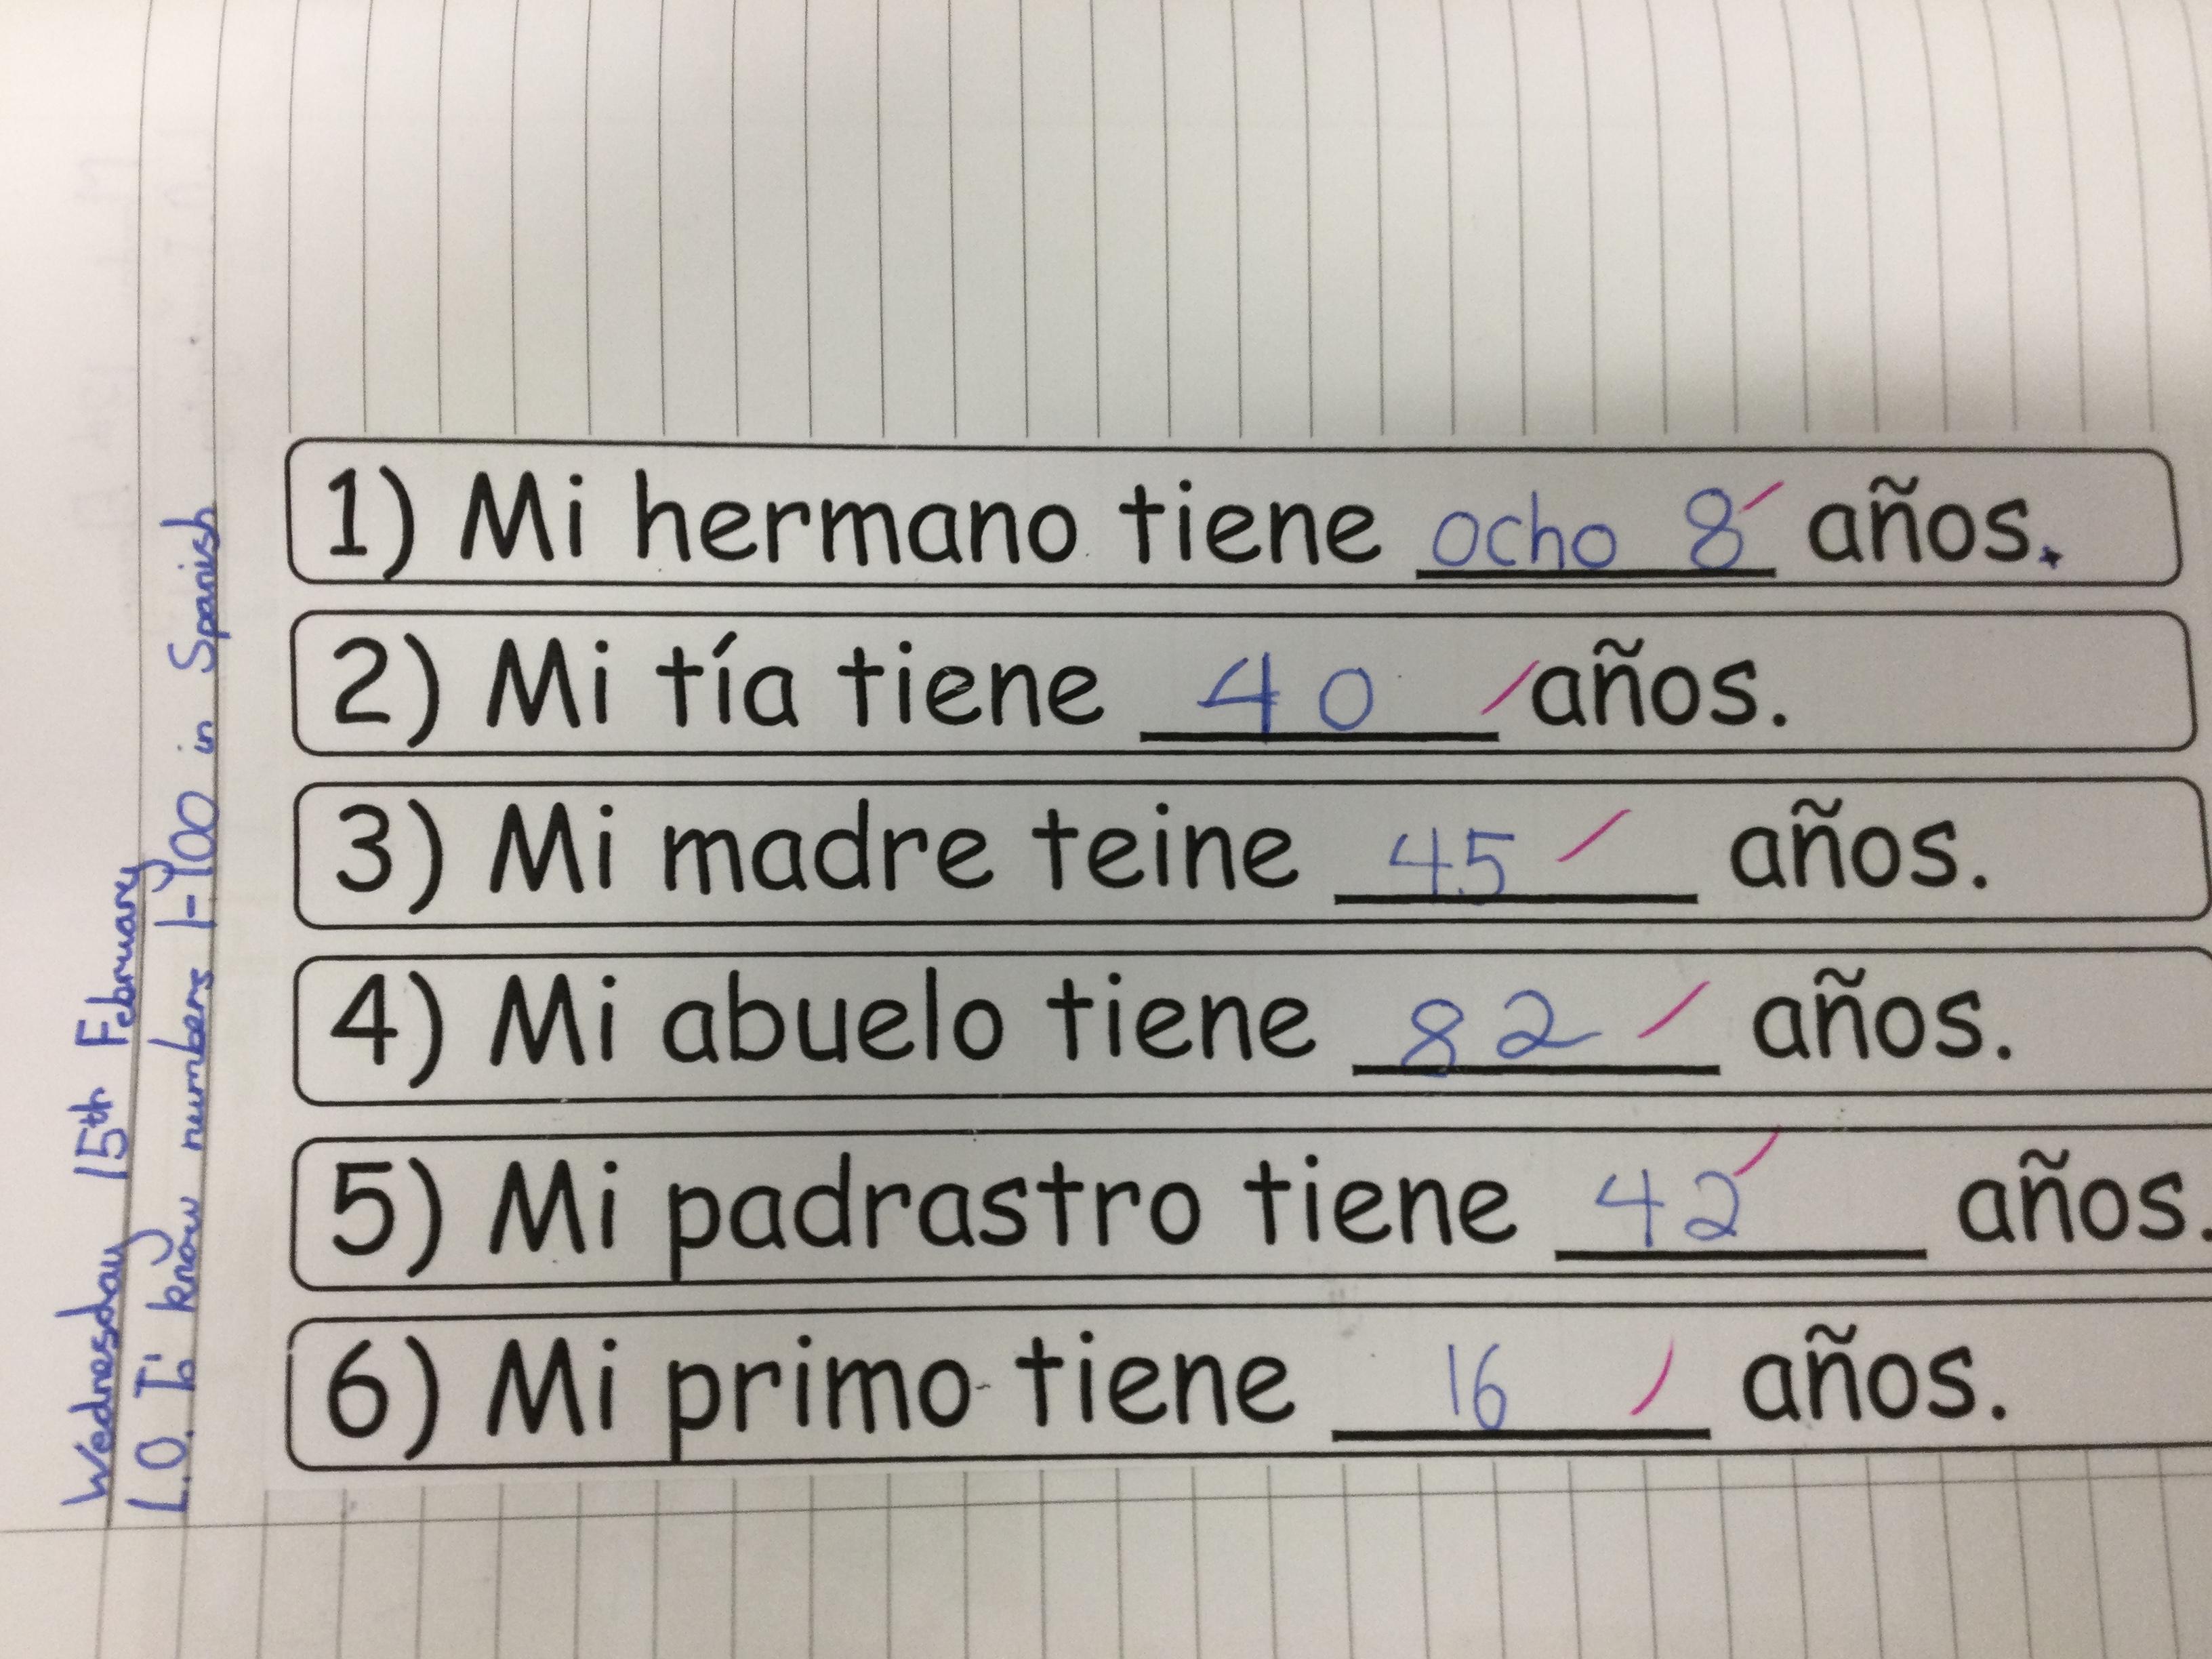 Wednesday 15th February
L.O. To know numbers 1-100 in Spanish
1) Mi hermano tiene ocho 8 años.
2) Mi tía tiene 40 años.
3) Mi madre teine 45 años.
4) Mi abuelo tiene 82 años.
5) Mi padrastro tiene 42 años.
6) Mi primo tiene 16 años.